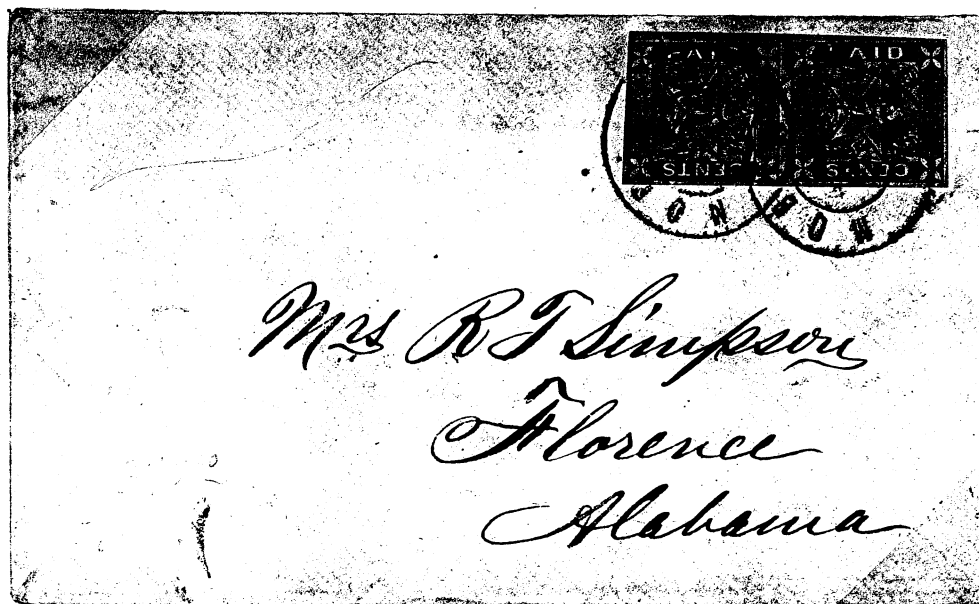 AID AID
CENTS CENTS
Mrs R T Simpson
Florence
Alabama